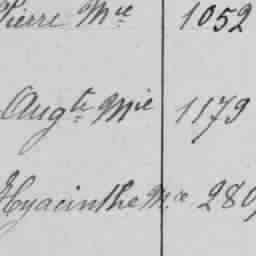 Pierre Mie 1052
Augte Mie 1179
Hyacinthe M.e 280